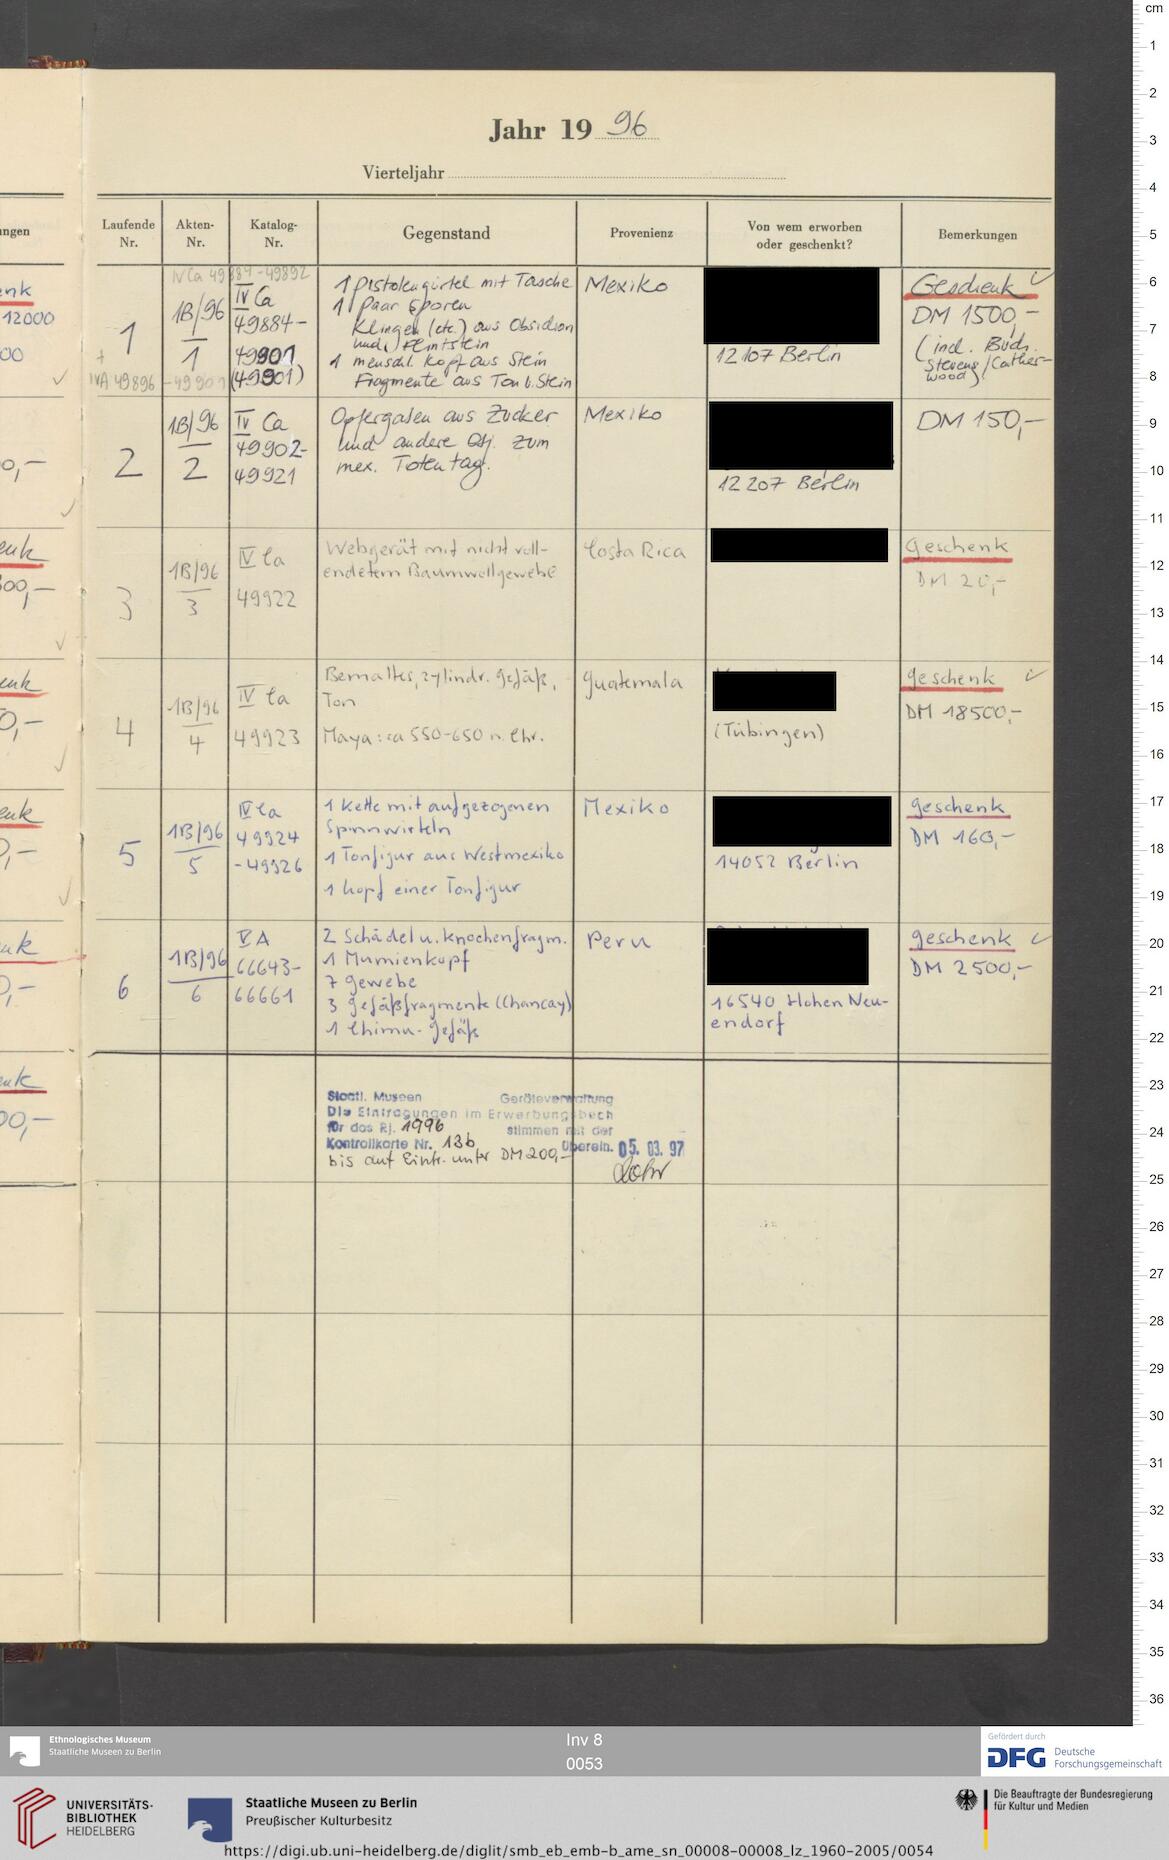 Jahr 19 96
Vierteljahr
Laufende Nr.
Akten-Nr.
Katalog-Nr.
Gegenstand
Provenienz
Von wem erworben oder geschenkt?
Bemerkungen
IV Ca 49884-49892
1
1B/96
1
IV Ca
49884-
49901
(49901)
+
IVA 49896 -49901
1 Pistolengürtel mit Tasche
1 Paar Sporen
Klingen (etc.) aus Obsidian
und Feintstein
1 menschl. Kopf aus Stein
Fragmente aus Ton u. Stein
Mexiko
12107 Berlin
Geschenk
DM 1500,-
(incl. Buch
Stevens/Cather-
wood)
2
1B/96
2
IV Ca
49902-
49921
Opfergaben aus Zucker
und andere Obj. zum
mex. Totentag.
Mexiko
12207 Berlin
DM 150,-
3
1B/96
3
IV Ca
49922
Webgerät mit nicht voll-
endetem Baumwollgewebe
Costa Rica
Geschenk
DM 20,-
4
1B/96
4
IV Ca
49923
Bemaltes, zylindr. Gefäß,
Ton
Maya: ca 550-650 n. Chr.
Guatemala
(Tübingen)
Geschenk
DM 18500,-
5
1B/96
5
IV Ca
49924
-49926
1 Kette mit aufgezogenen
Spinnwirteln
1 Tonfigur aus Westmexiko
1 Kopf einer Tonfigur
Mexiko
14052 Berlin
Geschenk
DM 160,-
6
1B/96
6
V A
66643-
66661
2 Schädel u. Knochenfragm.
1 Mumienkopf
7 Gewebe
3 Gefäßfragmente (Chancay)
1 Chimu-Gefäß
Peru
16540 Hohen Neu-
endorf
Geschenk
DM 2500,-
Staatl. Museen Geräteverwaltung
Die Eintragungen im Erwerbungsbuch
für das Rj. 1996 stimmen mit der
Kontrollkarte Nr. 13b überein. 05. 03. 97
bis auf Eintr. unter DM 200,-
ungen
12000
cm
1
2
3
4
5
6
7
8
9
10
11
12
13
14
15
16
17
18
19
20
21
22
23
24
25
26
27
28
29
30
31
32
33
34
35
36
Ethnologisches Museum
Staatliche Museen zu Berlin
Inv 8
0053
Gefördert durch
DFG Deutsche
Forschungsgemeinschaft
UNIVERSITÄTS-
BIBLIOTHEK
HEIDELBERG
Staatliche Museen zu Berlin
Preußischer Kulturbesitz
Die Beauftragte der Bundesregierung
für Kultur und Medien
https://digi.ub.uni-heidelberg.de/diglit/smb_eb_emb-b_ame_sn_00008-00008_lz_1960-2005/0054